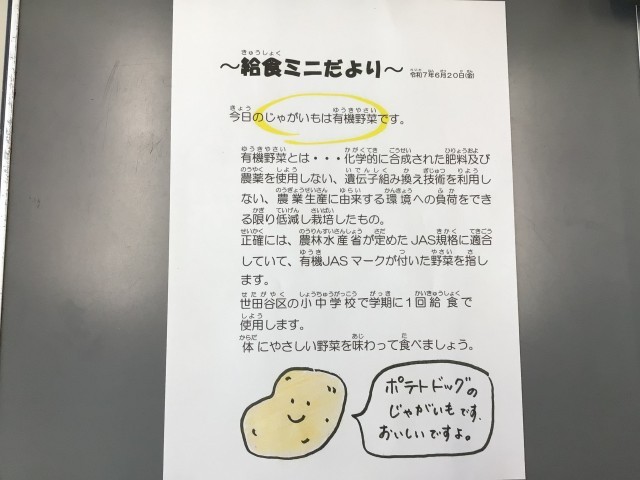 ～給食ミニだより～ 令和7年6月20日(金)
今日のじゃがいもは有機野菜です。
有機野菜とは・・・化学的に合成された肥料及び
農薬を使用しない、遺伝子組み換え技術を利用し
ない、農業生産に由来する環境への負荷をでき
る限り低減し栽培したもの。
正確には、農林水産省が定めたJAS規格に適合
していて、有機JASマークが付いた野菜を指し
ます。
世田谷区の小中学校で学期に1回給食で
使用します。
体にやさしい野菜を味わって食べましょう。
ポテトドッグの
じゃがいもです。
おいしいですよ。